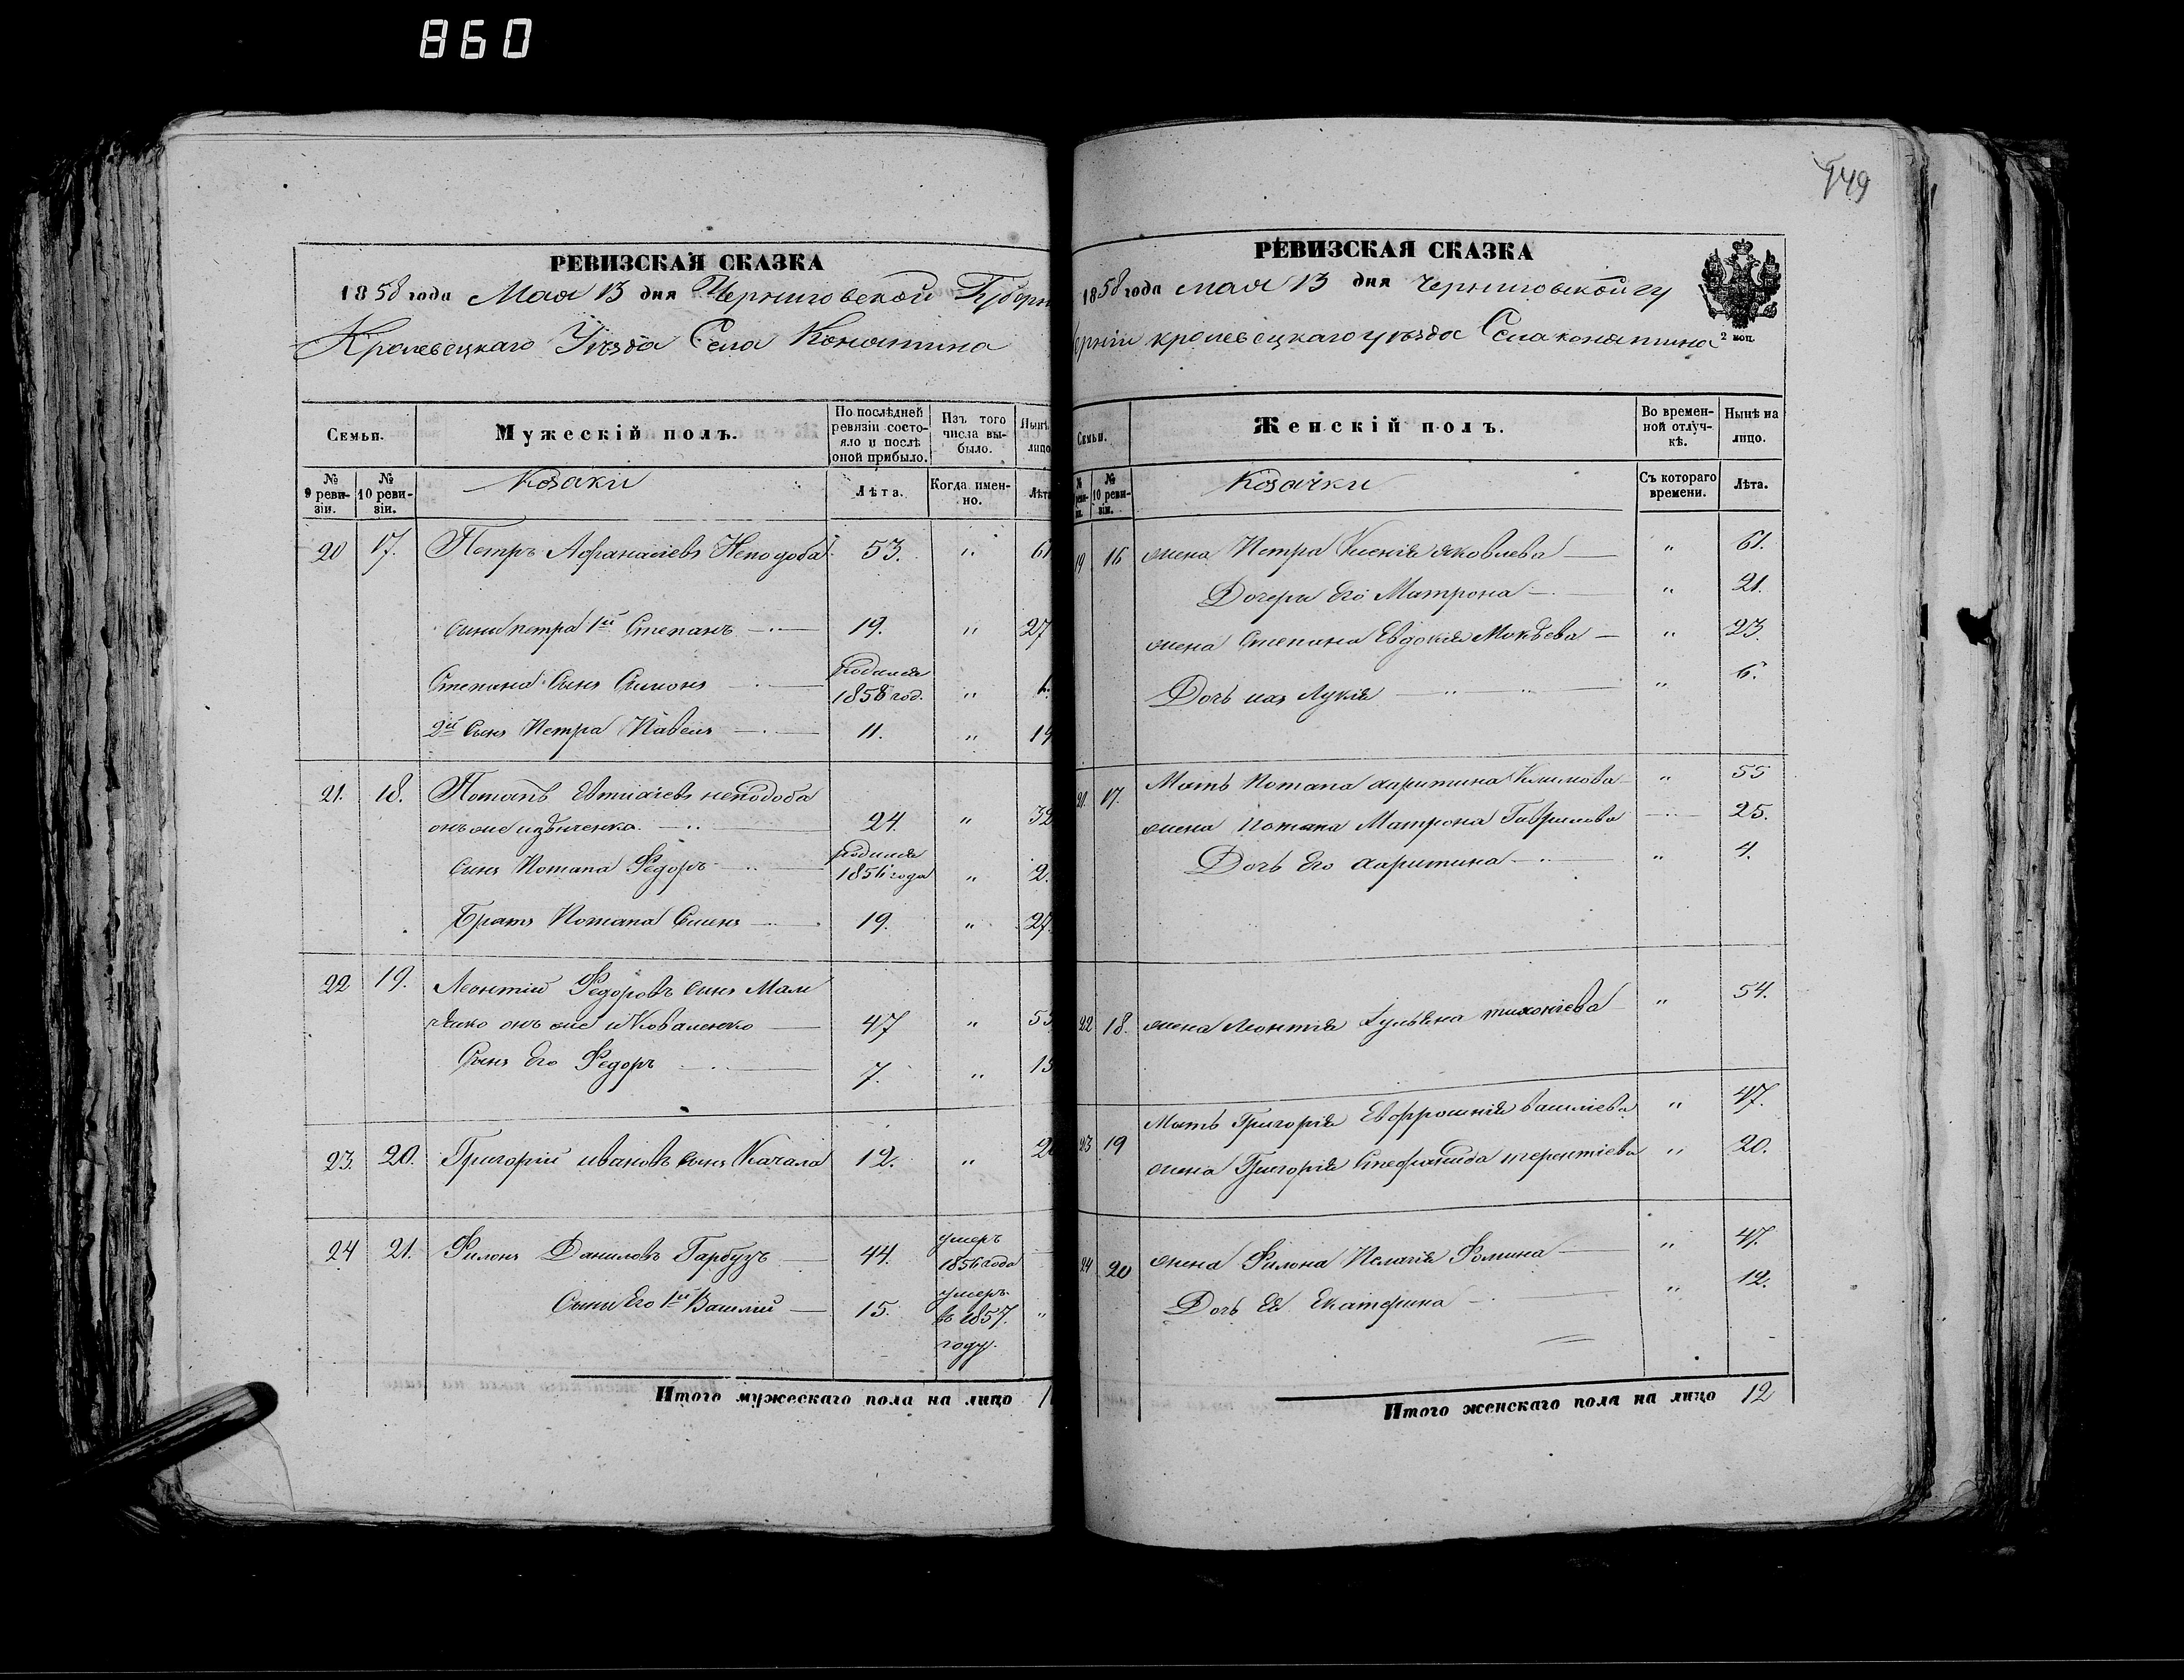 860
149
РЕВИЗСКАЯ СКАЗКА
1858 года Мая 13 дня Черниговской Губерн
Кролевецкаго Уѣзда Села Конятина
Семьи.
Мужескій полъ.
По послѣдней ревизіи состояло и послѣ оной прибыло.
Изъ того числа выбыло.
Нынѣ лицо
№ 9 ревизіи.
№ 10 ревизіи.
Козаки
Лѣта.
Когда именно.
Лѣта
20 17. Петръ Афанасіевъ Неподоба 53. „ 61
сыни петра 1й Степанъ 19. „ 27
Степана Сынъ Симонъ родился 1858 год. „
2й Сынъ Петра Павелъ 11. „ 19
21. 18. Потапъ Евтихіевъ неподоба
онъ же 24. „ 32
сынъ Потапа Федоръ родился 1856 года „ 2.
Братъ Потапа 19. „ 27.
22 19. Леонтій Федоровъ сынъ
онъ же и Коваленко 47 „ 55
Сынъ Его Федоръ 7. „ 15
23. 20. Григорій ивановъ сынъ Качала 12. „ 2
24 21. Филонъ Даниловъ Гарбузъ 44. умеръ 1856 года
Сыни Его 1й Василій 15. умеръ в 1857. году. „
Итого мужескаго пола на лицо 1
РЕВИЗСКАЯ СКАЗКА
1858 года мая 13 дня Черниговской гу
берніи кролевецкаго уѣзда Села конятина
2 коп.
Семьи.
Женскій полъ.
Во временной отлучкѣ.
Нынѣ на лицо.
№ 10 ревизіи.
Козачки
Съ котораго времени.
Лѣта.
19 16 жена Петра Ксенія яковлева „ 61.
Дочери Его Матрона „ 21.
жена Степана Евдокія Мокѣева „ 23.
Дочь ихъ Лукія „ 6.
21. 17. Мать Потапа харитина Климова „ 55
жена потапа Матрона Гаврилова 25.
Дочь Его харитина „ 4.
22 18. жена Леонтія Ульяна тихоніева „ 54.
23 19 Мать Григорія Евфросинія василіева „ 47.
жена Григорія Стефанида терентіева „ 20.
24 20 жена Филона Пелагія Фомина „ 47.
Дочь Ея Екатерина „ 12.
Итого женскаго пола на лицо 12